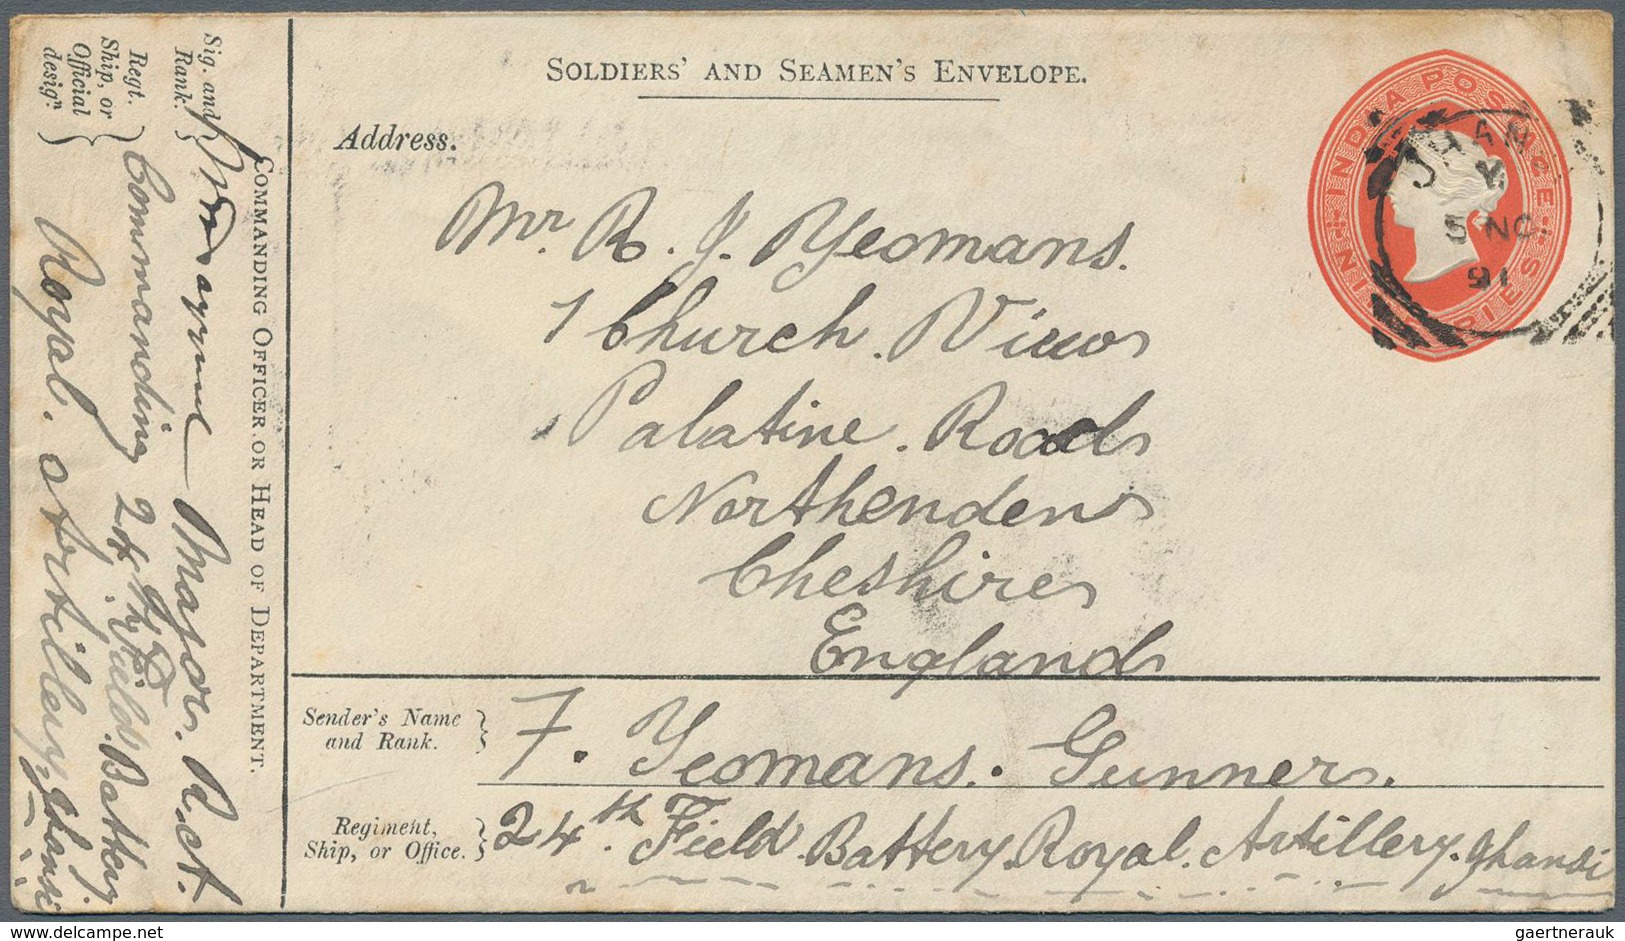 SOLDIERS' AND SEAMEN'S ENVELOPE.
Address.
Mr. R. J. Yeomans.
1 Church. View
Palatine. Road
Northenden
Cheshire
England
Sender's Name
and Rank.
F. Yeomans. Gunner.
Regiment,
Ship, or Office.
24th Field Battery Royal. Artillery. Jhansi
COMMANDING OFFICER OR HEAD OF DEPARTMENT.
Sig. and
Rank.
Major. R.A.
Regt.
Ship, or
Official
desigⁿ.
Commanding 24th Field. Battery.
Royal. Artillery, Jhansi
INDIA POSTAGE
PIES
JHANSI
5 NO
91
gaertnerauk